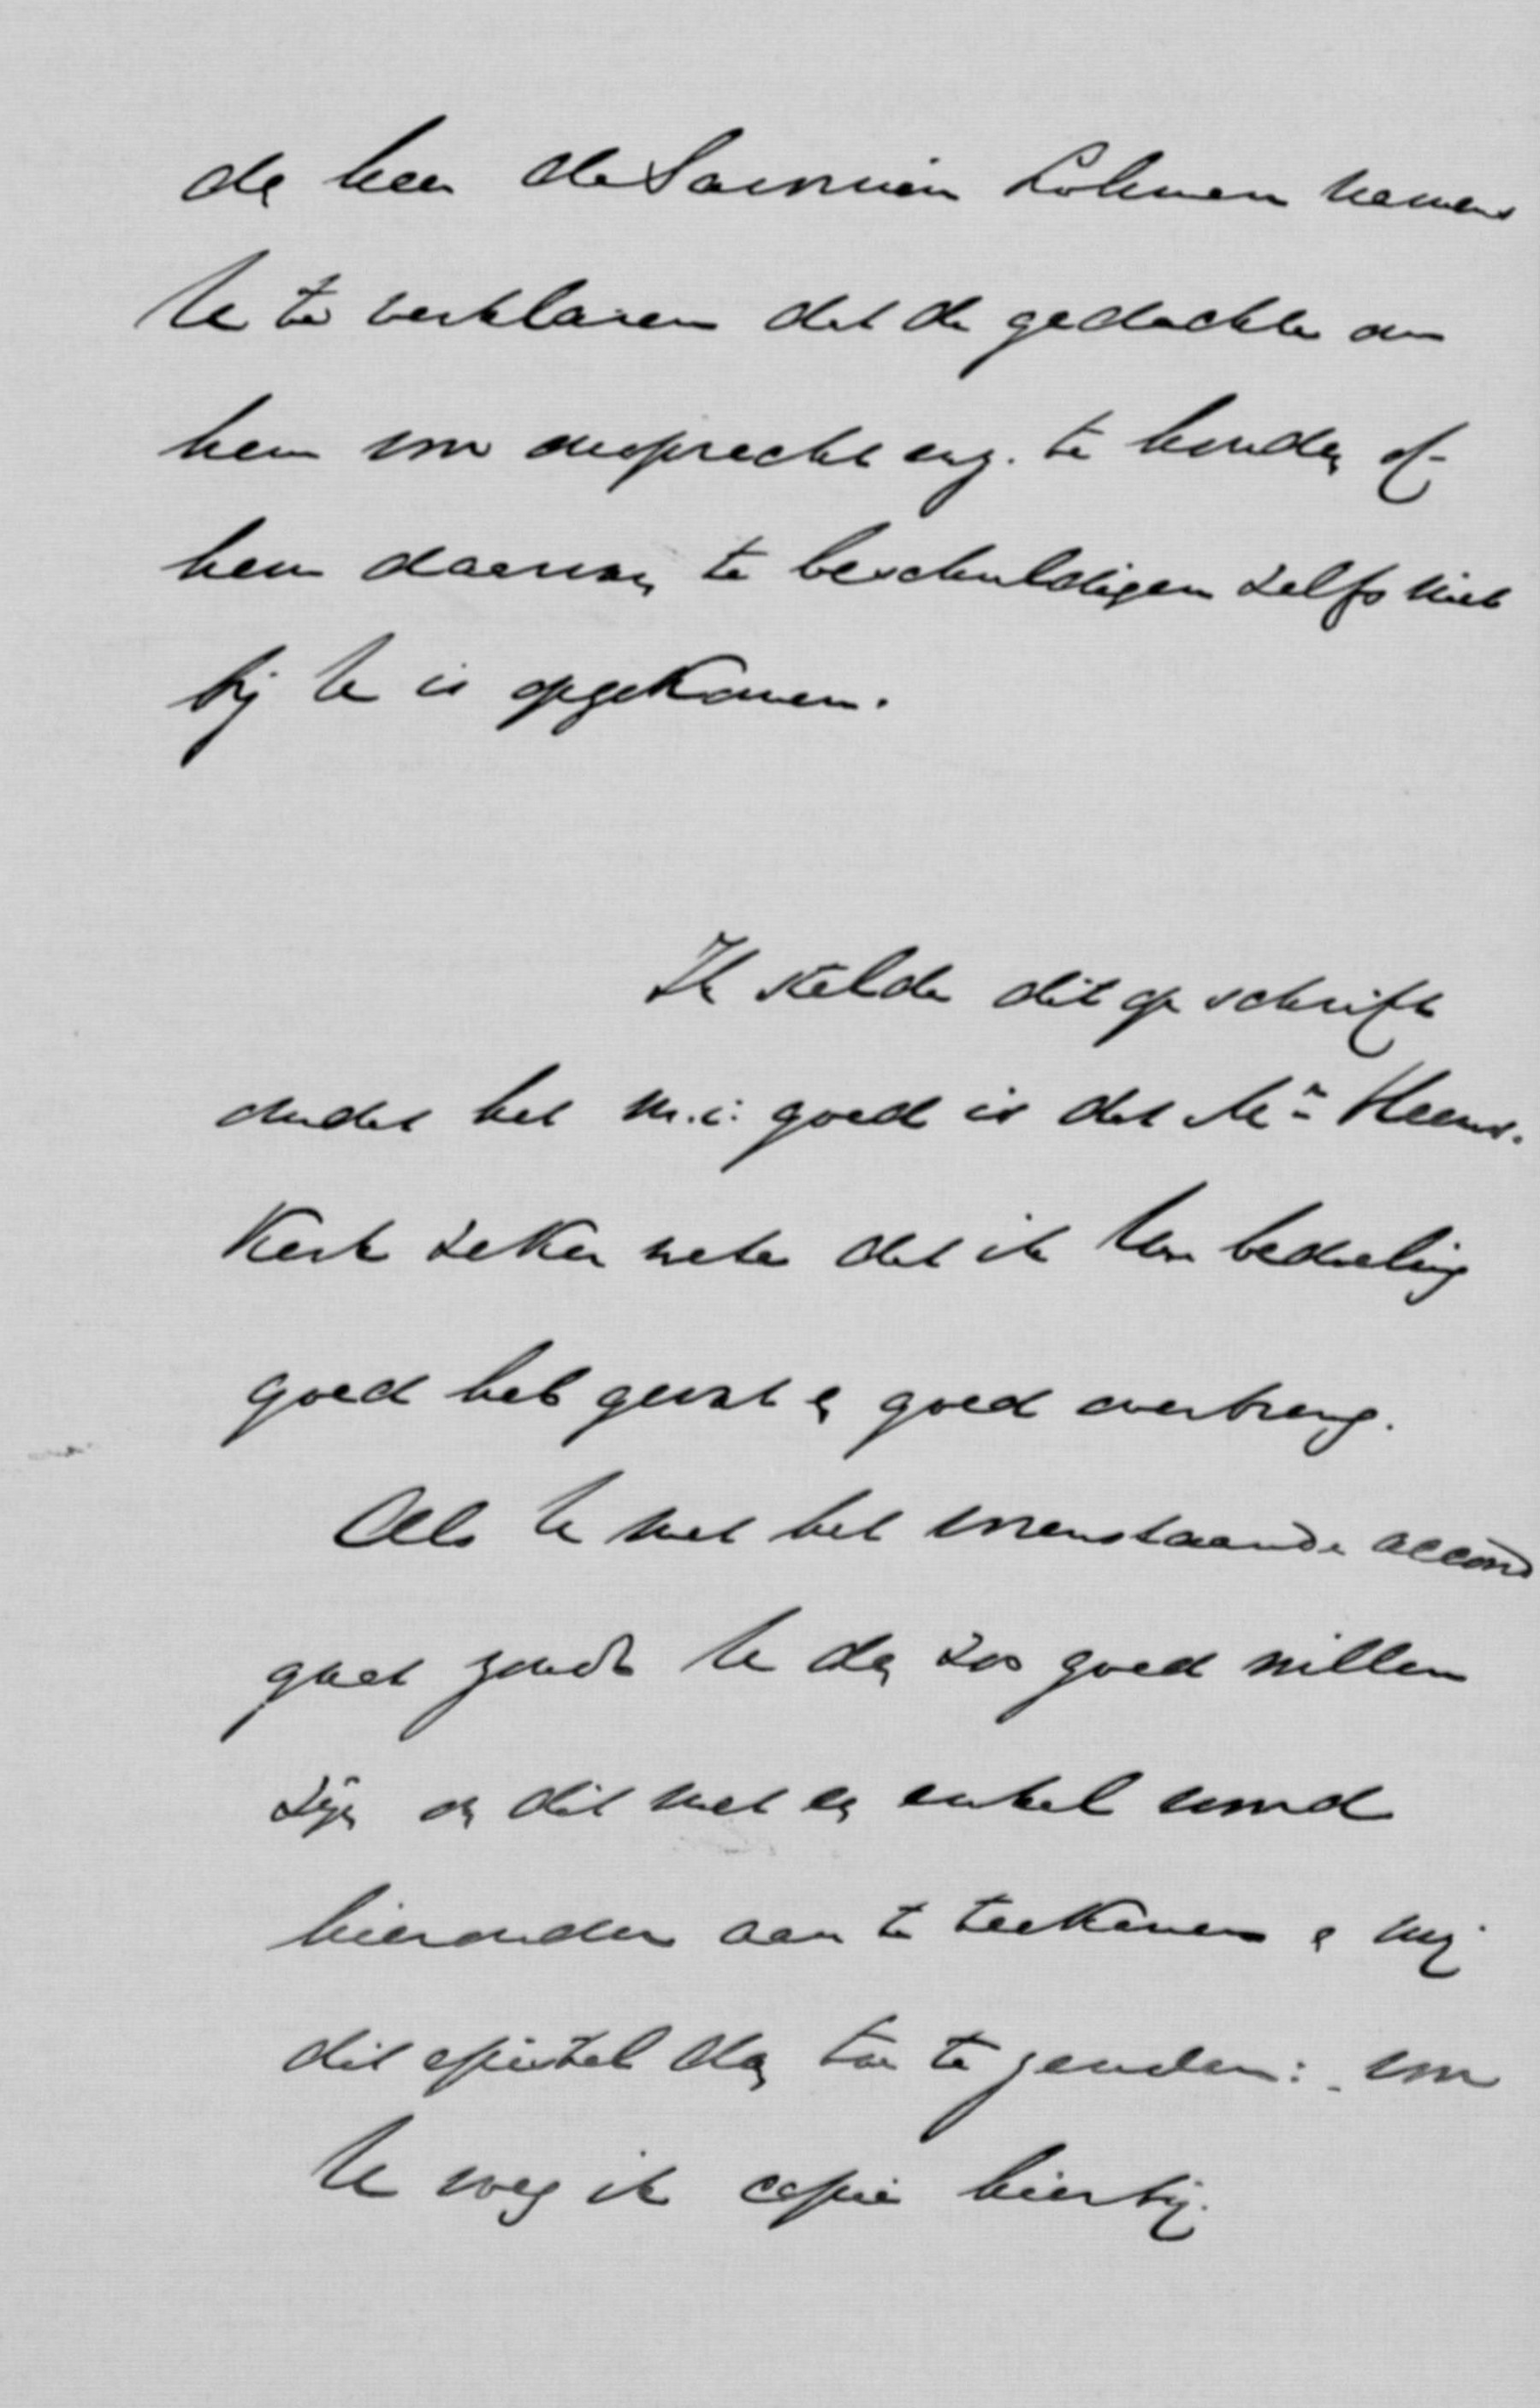 den heer de Savornin Lohman namens
U te verklaren dat de gedachte om
hem voor onoprecht enz. te houden of
hem daarvan te beschuldigen zelfs niet
bij U is opgekomen.
Ik stelde dit op schrift
omdat het m.i. goed is dat Mr Heems-
kerk zeker wete dat ik Uw bedoeling
goed heb gevat en goed overbreng.
Als U met het bovenstaande accoord
gaat zoudt U dan zoo goed willen
zijn om dit met een enkel woord
hieronder aan te teekenen en mij
dit epistel dan toe te zenden: voor
U voeg ik copie hierbij.